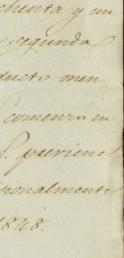 chenta y un
segunda
ducto men
comenzó en
S. puriene
cionalmente
1848.